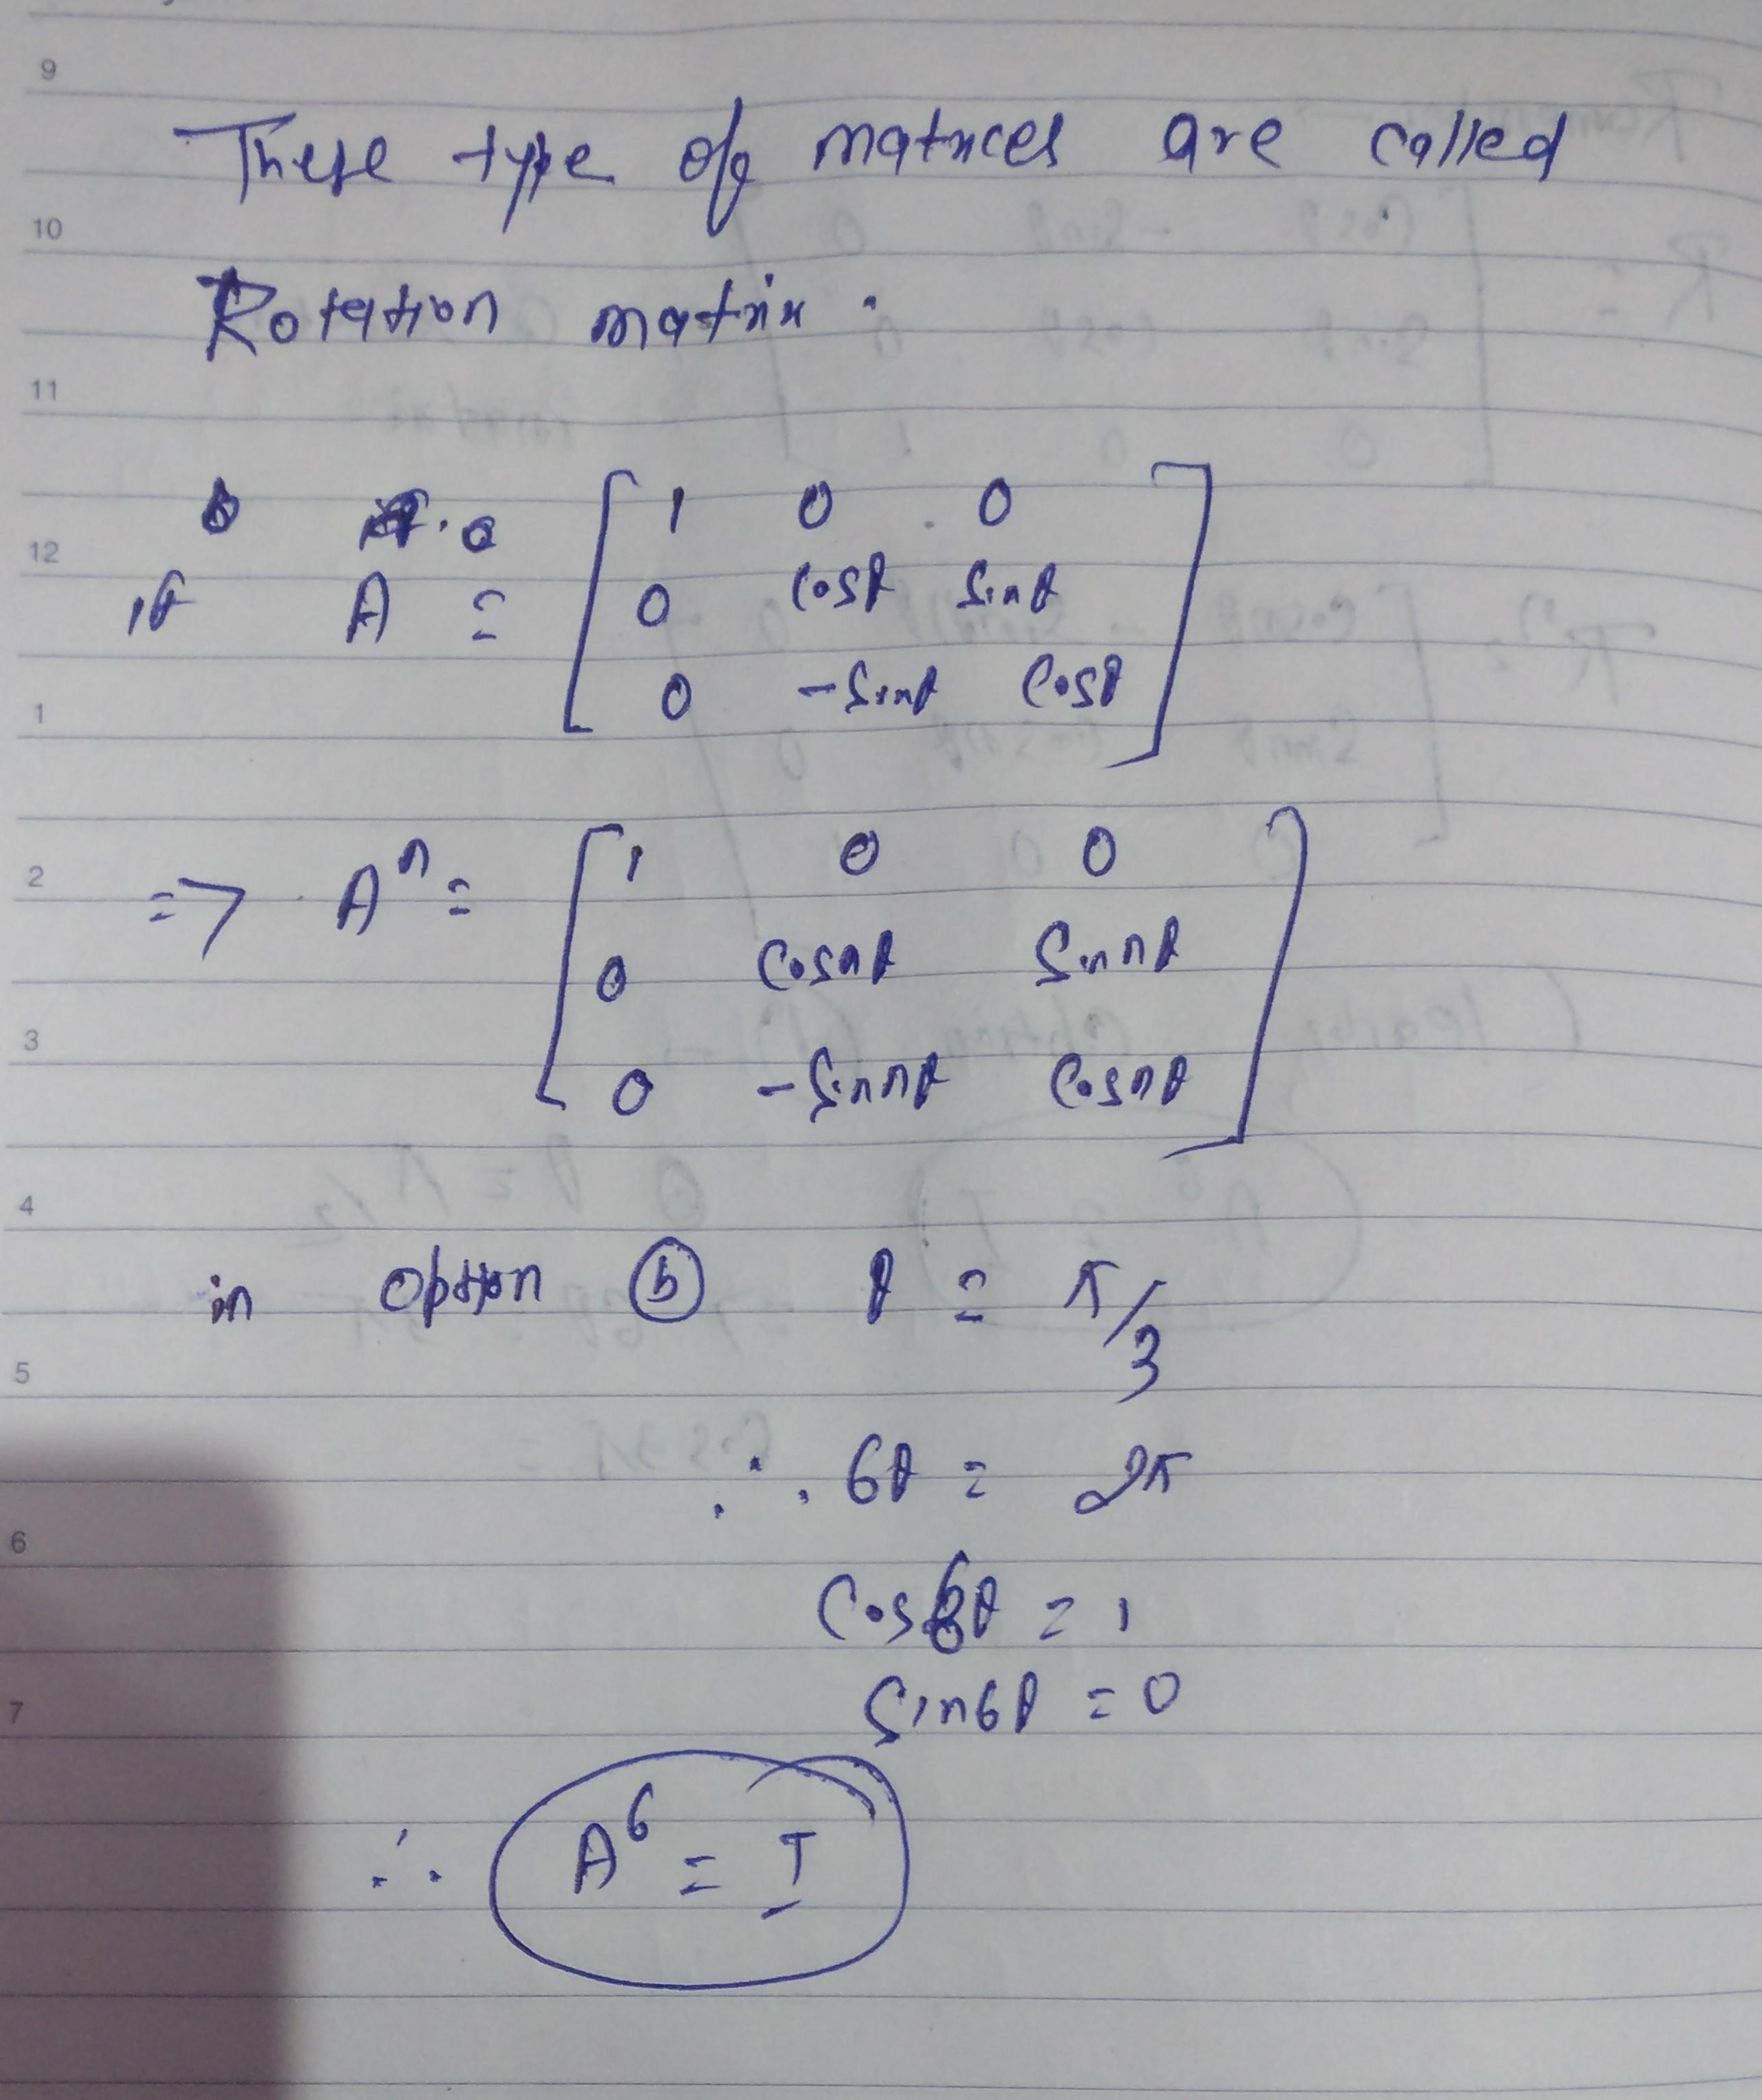 9
These type of matrices are called
10
Rotation matrix.
11
12
if A = [ 1 0 0
0 cosθ sinθ
0 -sinθ cosθ ]
1
2
=> Aⁿ = [ 1 0 0
0 cosnθ sinnθ
3
0 -sinnθ cosnθ ]
4
in option ⓑ θ = π/3
5
∴ 6θ = 2π
6
cos6θ = 1
7
sin6θ = 0
∴ A⁶ = I